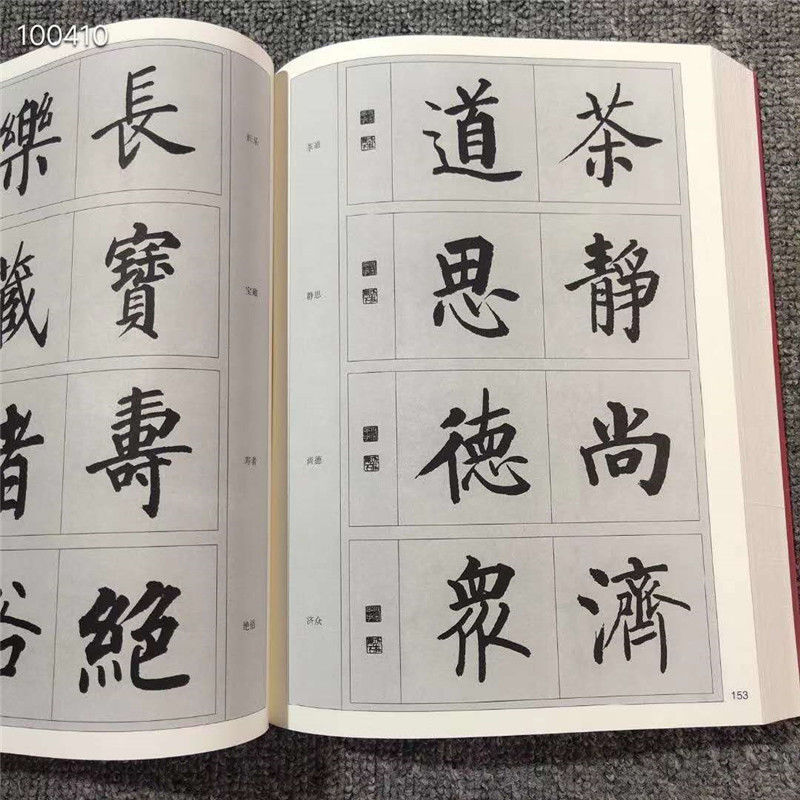 100410
長樂
长乐
寶藏
宝藏
壽者
寿者
絕俗
绝俗
茶道
茶道
靜思
静思
尚德
尚德
濟眾
济众
153